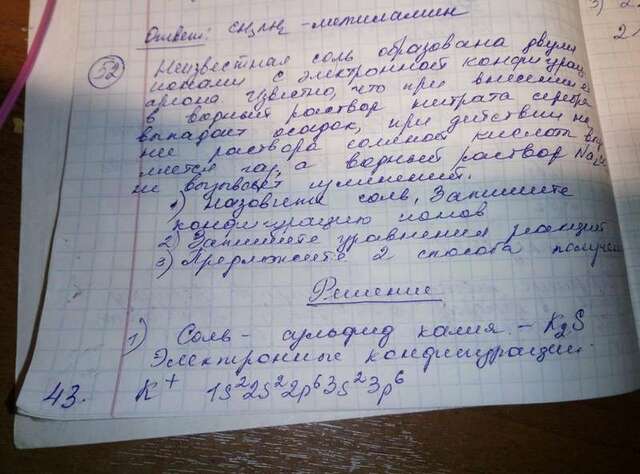 Ответ: CH3NH2 - метиламин
52
Неизвестная соль образована двумя
ионами с электронной конфигурац
аргона. Известно, что при внесении её
в водный раствор нитрата серебра
выпадает осадок, при действии на
нее раствора соляной кислоты выд
ляется газ, а водный раствор
не вызывает изменений.
1) Назовите соль, Запишите
конфигурацию ионов
2) Запишите уравнения реакций
3) Предложите 2 способа получен
Решение
1) Соль - сульфид калия. - K2S
Электронные конфигурации:
43. K⁺ 1s²2s²2p⁶3s²3p⁶
3) 2
2